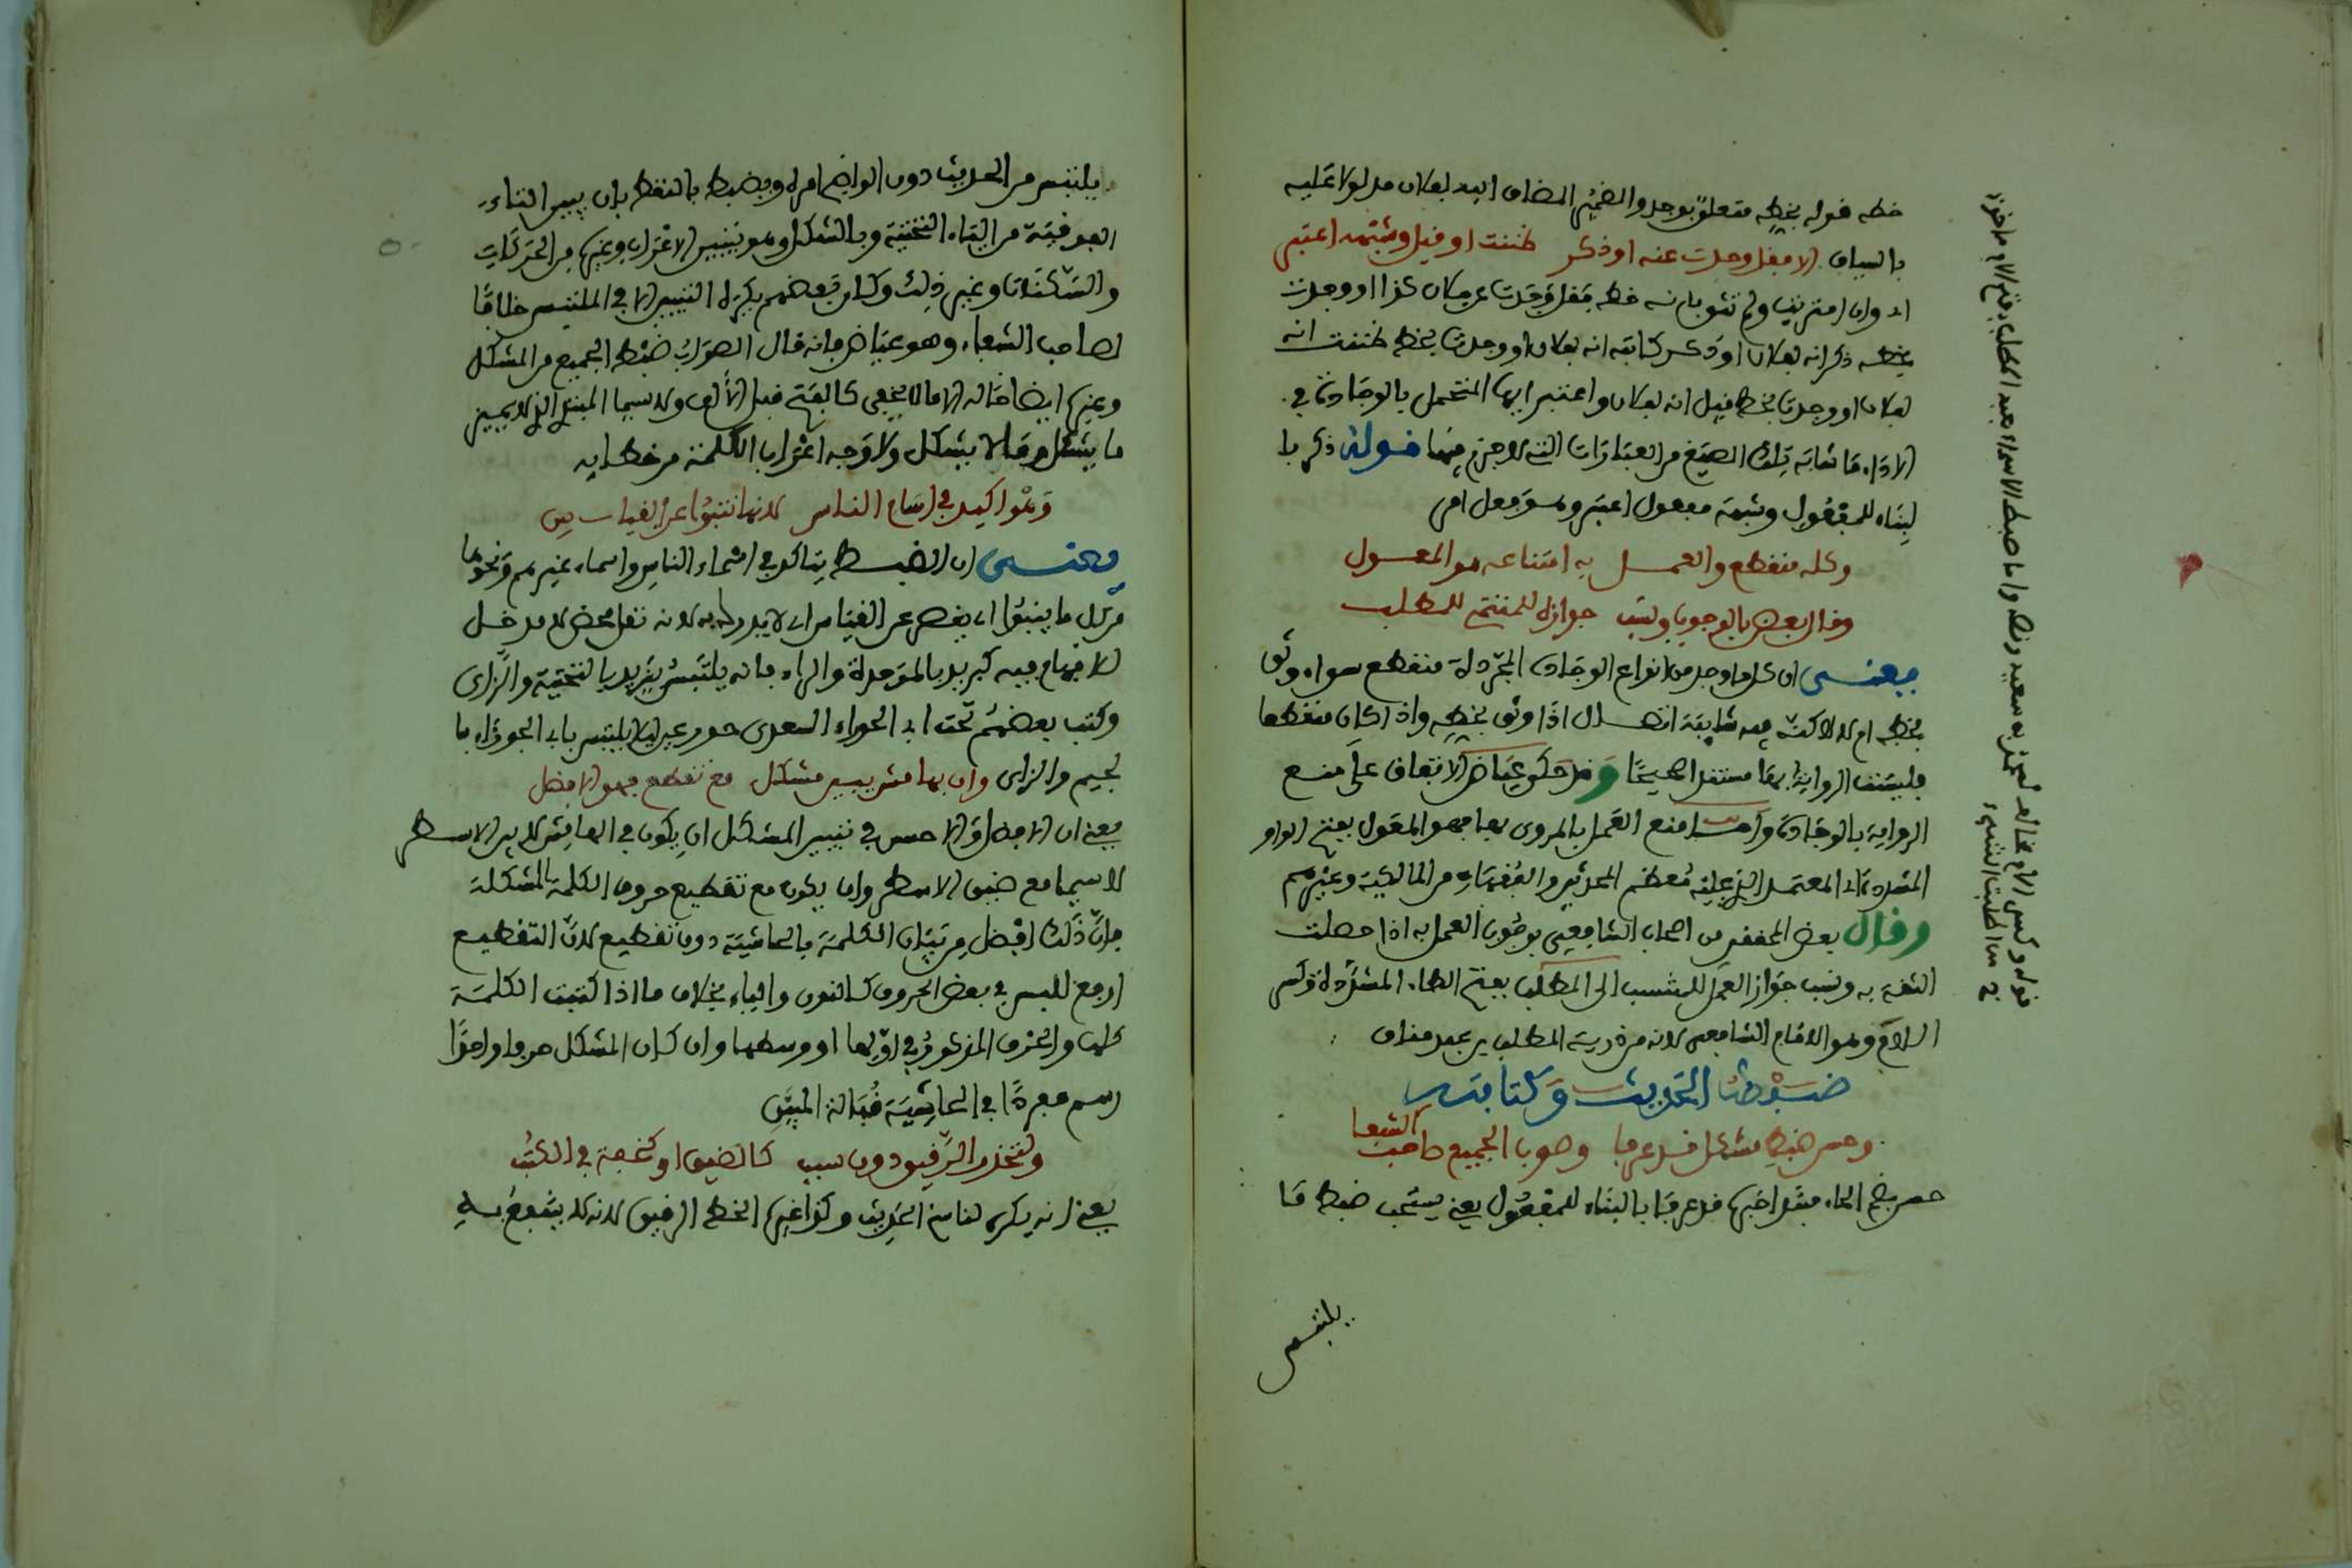 خطه فوله بخطه متعلق بوجد والضمير المضاف اليه لفلان مدلولا عليه
بالسياق الا ففل وجدت عنه او ذكر ظننت او فيل وشبهه اعتبر
اي وان امتريت ولم تثق بانه خطه ففل وجدت عن فلان كذا او وجدت
بخطه ذكر انه لفلان او ذكر كاتبه انه لفلان او وجدت بخط ظننت انه
لفلان او وجدت بخط فيل انه لفلان واعتبر ايها المتحمل بالوجادة في
الاداء ما شابه تلك الصيغ من العبارات التي لا جزم فيها فوله ذكر با
لبناء للمفعول وشبهه مفعول اعتبر وهو فعل امر
وكله منفطع والعمل به امتناعه هو المعول
وفال بعض بالوجوب ونسب جوازه للمنتمي للمطلب
يعنى ان كل ما وجد من انواع الوجادة المجردة منفطع سواء وثق
بخطه ام لا لاكن فيه شايبة اتصال اذا وثق بخطه واذا كان منفطعا
فليست الرواية بها مستندا صحيحا وفد حكى عياض الاتفاق على منع
الرواية بالوجادة واما منع العمل بالمروى بها فهو المعول بفتح الواو
المشددة اى المعتمد الذي عليه معظم المحدثين والففهاء من المالكية وغيرهم
وفال بعض المحففين من اصحاب الشافعي بوجوب العمل به اذا حصلت
الثفة به ونسب جواز العمل للمنتسب الى المطلب بفتح الطاء المشددة وكسر
اللام وهو الامام الشافعي لانه من ذرية المطلب بن عبد مناف
ضبط الحديث وكتابته
وحسن ضبط مشكل فد عرفا وصوب الجميع صاحب الشفا
حسن بضم الحاء مبتدا خبره فد عرفا بالبناء للمفعول يعني يستحب ضبط ما
يلتبس
يلتبس من الحديث دون الواضح امره ويضبط بالنفط بان يبين التاء
الفوفية من الياء التحتية وبالشكل وهو تبيين الاعراب وغيره من الحركات
والسكنات وغير ذلك وكان بعضهم يكره التبيين الا في الملتبس خلافا
لصاحب الشفاء وهو عياض فانه فال الصواب ضبط الجميع من المشكل
وغيره ايضا فاله الا ما لا يخفى كالفتح فبل الالف ولا سيما المبتدئ الذي لا يميز
ما يشكل وما لا يشكل ولا وجه اعراب الكلمة من خطايه
وهو اكيد في اسامي الناس لانها تنبو عن الفياس
يعنى ان الضبط يتاكد في اسماء الناس واسماء غيرهم ونحوها
من كل ما ينبوا اى يفصر عن الفياس اى لا يدرك به لانه نفل محض لا مدخل
للافهام فيه كبريد بالموحدة والراء فانه يلتبس بيزيد بالتحتية والزاى
وكتب بعضهم تحت ابى الحوراء السعدى حور عين ليلا يلتبس بابى الجوزاء با
لجيم والزاى وان بهامش يبين مشكل مع تفطع فهو الافضل
يعني ان الافضل والاحسن في تبيين المشكل ان يكون في الهامش لا بين الاسطر
لاسيما مع ضيق الاسطر وان يكون مع تفطيع حروف الكلمة المشكلة
فان ذلك افضل من تبيان الكلمة بالحاشية دون تفطيع لان التفطيع
ادفع للبس في بعض الحروف كالنون والياء بخلاف ما اذا كتبت الكلمة
كلها والحرف المذكور في اولها او وسطها وان كان المشكل حرفا واحدا
رسم مفردا في الحاشية فبالة المبين
ولتحذر الرفيق دون سبب كالضيق او كخفة في الكتب
يعني انه يكره لناسخ الحديث وكذا غيره الخط الرفيق لانه لا ينتفع به